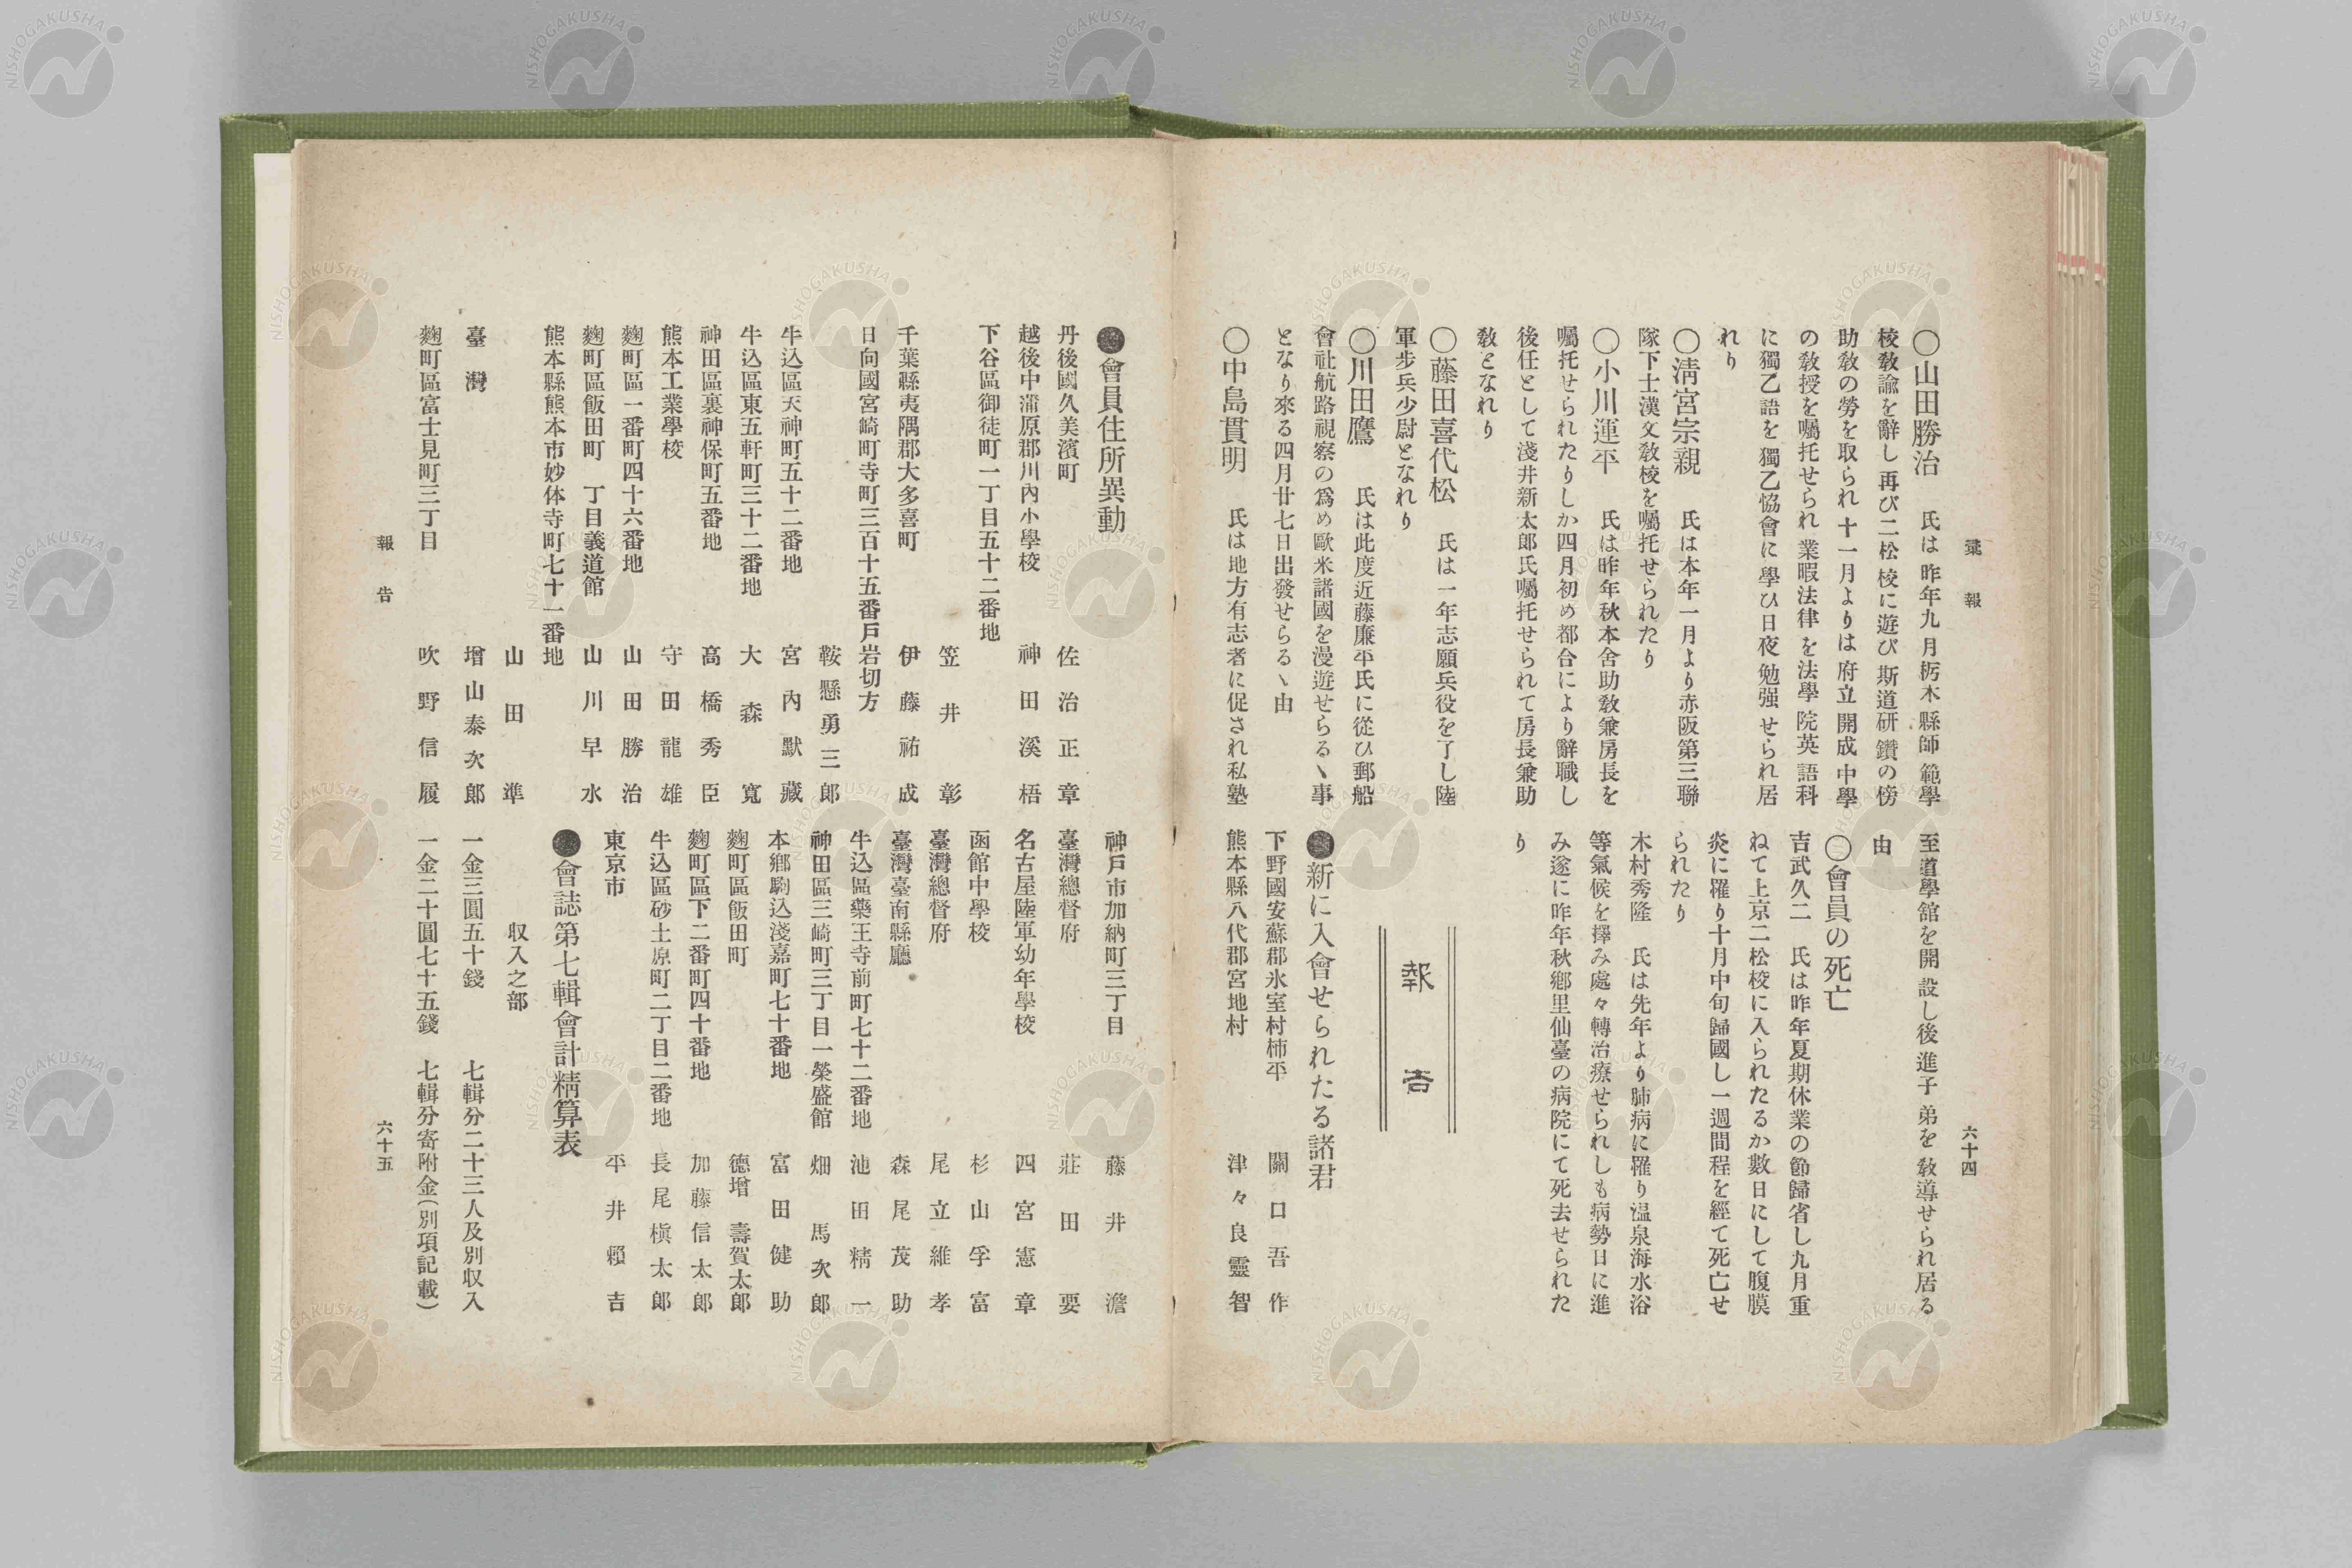 彙報
六十四
〇山田勝治　氏は昨年九月栃木縣師範學
校敎諭を辭し再び二松校に遊び斯道硏鑽の傍
助敎の勞を取られ十一月よりは府立開成中學
の敎授を囑托せられ業暇法律を法學院英語科
に獨乙語を獨乙恊會に學ひ日夜勉强せられ居
れり
〇淸宮宗親　氏は本年一月より赤阪第三聯
隊下士漢文敎校を囑托せられたり
〇小川運平　氏は昨年秋本舍助敎兼房長を
囑托せられたりしか四月初め都合により辭職し
後任として淺井新太郎氏囑托せられて房長兼助
敎となれり
〇藤田喜代松　氏は一年志願兵役を了し陸
軍步兵少尉となれり
〇川田鷹　氏は此度近藤廉平氏に從ひ郵船
會社航路視察の爲め歐米諸國を漫遊せらるヽ事
となり來る四月廿七日出發せらるヽ由
〇中島貫明　氏は地方有志者に促され私塾
至道學舘を開設し後進子弟を敎導せられ居る
由
〇會員の死亡
吉武久二　氏は昨年夏期休業の節歸省し九月重
ねて上京二松校に入られたるか數日にして腹膜
炎に罹り十月中旬歸國し一週間程を經て死亡せ
られたり
木村秀隆　氏は先年より肺病に罹り温泉海水浴
等氣候を擇み處々轉治療せられしも病勢日に進
み遂に昨年秋鄕里仙臺の病院にて死去せられた
り
報告
●新に入會せられたる諸君
下野國安蘇郡氷室村柿平　關口吾作
熊本縣八代郡宮地村　津々良靈智
●會員住所異動
丹後國久美濱町　佐治正章
越後中蒲原郡川內小學校　神田溪梧
下谷區御徒町一丁目五十二番地
笠井彰
千葉縣夷隅郡大多喜町　伊藤祐成
日向國宮崎町寺町三百十五番戶岩切方
鞍懸勇三郎
牛込區天神町五十二番地　宮內默藏
牛込區東五軒町三十二番地　大森寬
神田區裏神保町五番地　高橋秀臣
熊本工業學校　守田龍雄
麴町區一番町四十六番地　山田勝治
麴町區飯田町　丁目義道館　山川早水
熊本縣熊本市妙体寺町七十一番地
山田準
臺灣　增山泰次郎
麴町區富士見町三丁目　吹野信履
神戶市加納町三丁目　藤井澹
臺灣總督府　莊田要
名古屋陸軍幼年學校　四宮憲章
函館中學校　杉山孚富
臺灣總督府　尾立維孝
臺灣臺南縣廳　森尾茂助
牛込區藥王寺前町七十二番地　池田精一
神田區三崎町三丁目一榮盛館　畑馬次郎
本鄕駒込淺嘉町七十番地　富田健助
麴町區飯田町　德增壽賀太郎
麴町區下二番町四十番地　加藤信太郎
牛込區砂土原町二丁目二番地　長尾槇太郎
東京市　平井賴吉
●會誌第七輯會計精算表
收入之部
一金三圓五十錢　七輯分二十三人及別收入
一金二十圓七十五錢　七輯分寄附金(別項記載)
報告
六十五
NISHOGAKUSHA